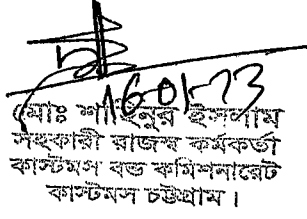 16-01-23
মোঃ শাহিনুর ইসলাম
সহকারী রাজস্ব কর্মকর্তা
কাস্টমস বন্ড কমিশনারেট
কাস্টমস চট্টগ্রাম।